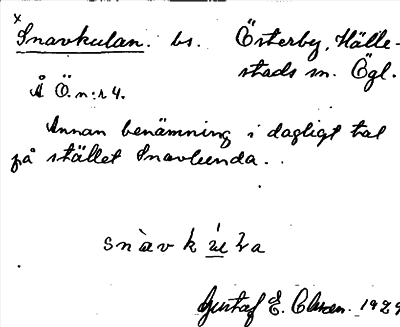 Snavkulan. bs. Österby, Hälle-
stads sn. Ögl.
Å Ö. n:r 4.
Annan benämning i dagligt tal
på stället Snavlunda.
snàvkúla
Gustaf E. Olsson. 1929